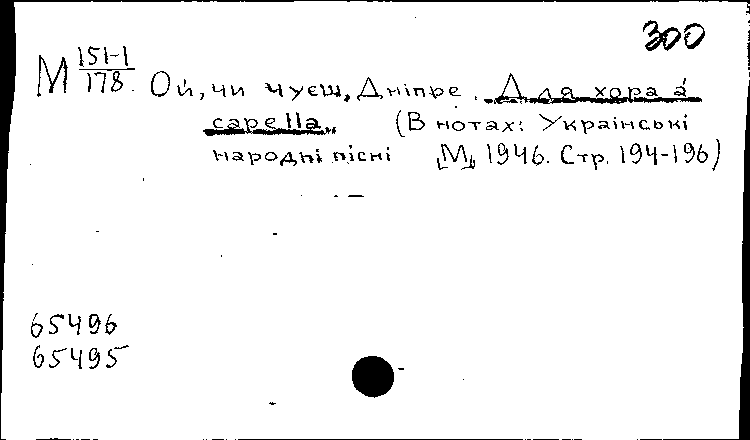 300
М 151-1/178. Ой, чи чуєш, Дніпре. Для хора а́
capella. (В нотах: Українські
народні пісні М, 1946. Стр. 194-196)
65496
65495